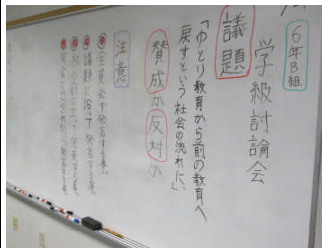 6年B組
学級討論会
議題
「ゆとり教育から前の教育へ
戻すという社会の流れに、」
賛成か反対か
注意
全員必ず発言する事。
議題に沿って発言する事。